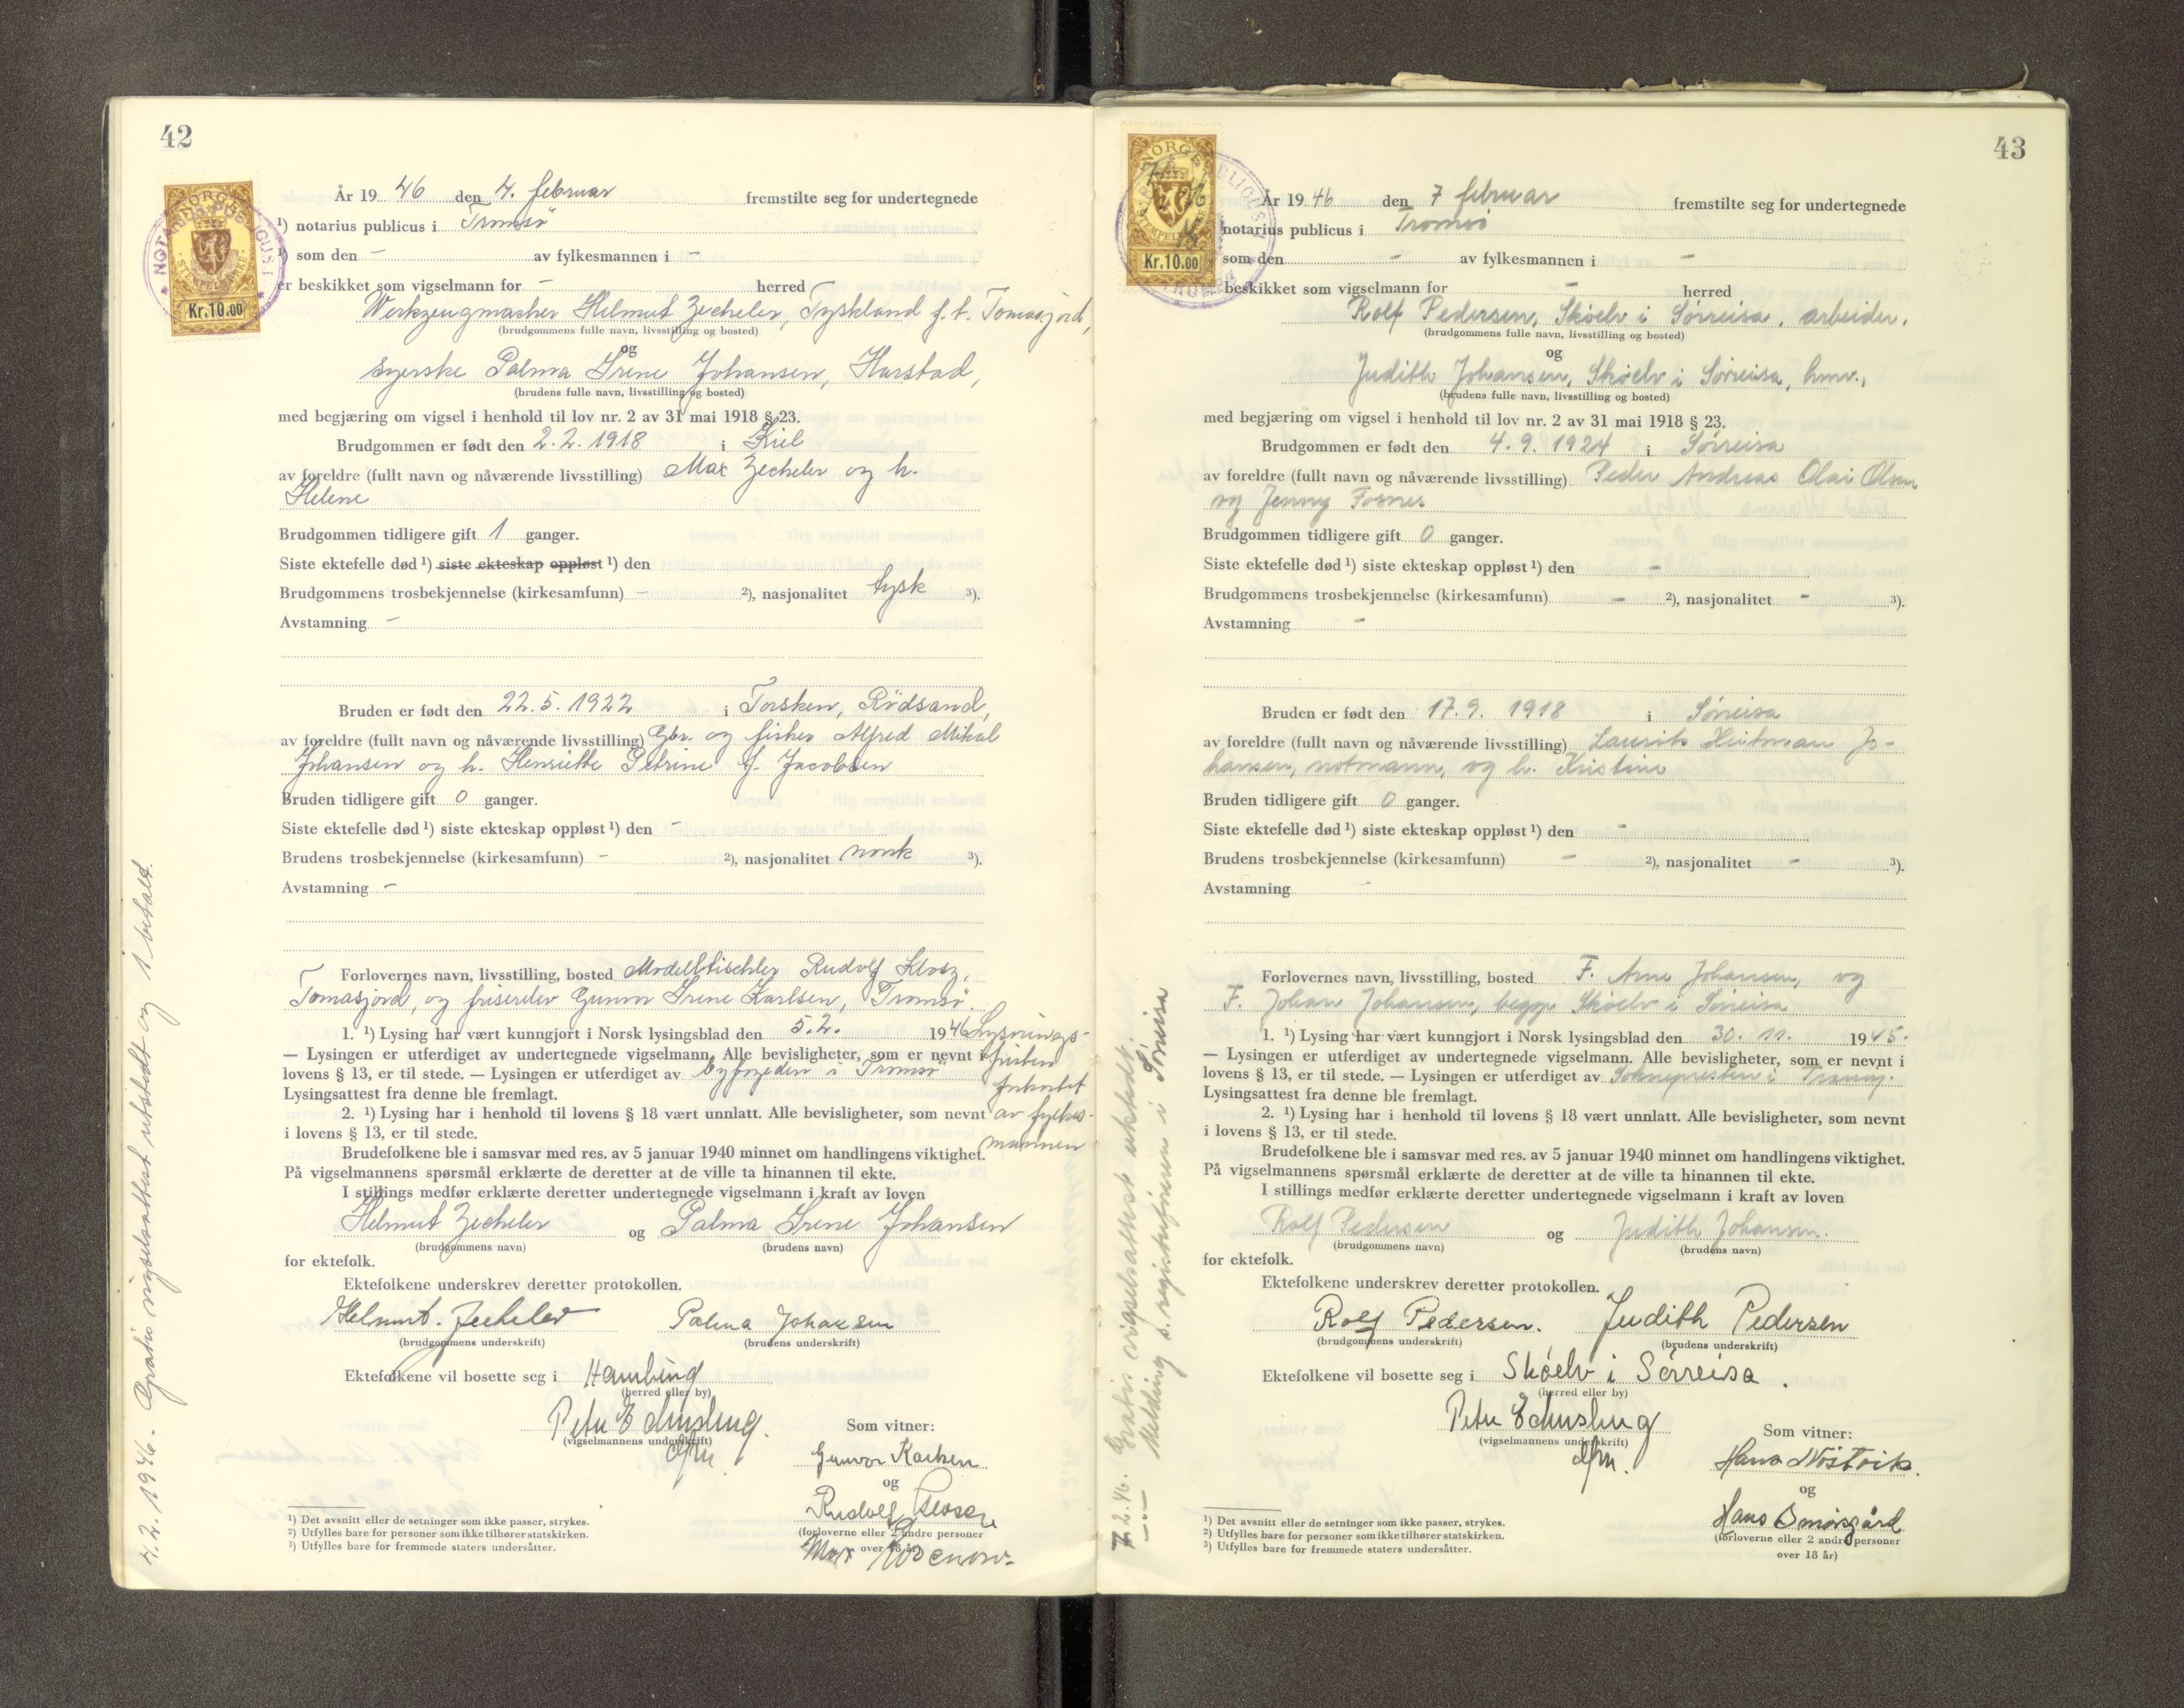 42
År 19 46 den 7. februar fremstilte seg for undertegnede
¹) notarius publicus i Tromsø
¹) som den - av fylkesmannen i -
er beskikket som vigselmann for - herred
Werkzeugmacher Helmut Zecheler, Tyskland f. t. Tomasjord,
(brudgommens fulle navn, livsstilling og bosted)
og
syerske Palma Irene Johansen, Harstad,
(brudens fulle navn, livsstilling og bosted)
med begjæring om vigsel i henhold til lov nr. 2 av 31 mai 1918 § 23.
Brudgommen er født den 2. 2. 1918 i Kiel
av foreldre (fullt navn og nåværende livsstilling) Max Zecheler og h.
Helene
Brudgommen tidligere gift 1 ganger.
Siste ektefelle død ¹) siste ekteskap oppløst ¹) den
Brudgommens trosbekjennelse (kirkesamfunn) - ²), nasjonalitet tysk ³).
Avstamning -
Bruden er født den 22. 5. 1922 i Torsken, Rødsand,
av foreldre (fullt navn og nåværende livsstilling) Gbr. og fisker Alfred Mikal
Johansen og h. Henriette Petrine f. Jacobsen
Bruden tidligere gift 0 ganger.
Siste ektefelle død ¹) siste ekteskap oppløst ¹) den -
Brudens trosbekjennelse (kirkesamfunn) - ²), nasjonalitet norsk ³).
Avstamning -
Forlovernes navn, livsstilling, bosted Modelltischler Rudolf Klosz,
Tomasjord, og friserelev Gunvor Irene Karlsen, Tromsø.
1. ¹) Lysing har vært kunngjort i Norsk lysingsblad den 5. 2. 19 46 Lysnings-
— Lysingen er utferdiget av undertegnede vigselmann. Alle bevisligheter, som er nevnt i fristen
lovens § 13, er til stede. — Lysingen er utferdiget av byfogeden i Tromsø forkortet
Lysingsattest fra denne ble fremlagt.
2. ¹) Lysing har i henhold til lovens § 18 vært unnlatt. Alle bevisligheter, som nevnt av fylkes-
i lovens § 13, er til stede. mannen
Brudefolkene ble i samsvar med res. av 5 januar 1940 minnet om handlingens viktighet.
På vigselmannens spørsmål erklærte de deretter at de ville ta hinannen til ekte.
I stillings medfør erklærte deretter undertegnede vigselmann i kraft av loven
Helmut Zecheler og Palma Irene Johansen
(brudgommens navn) (brudens navn)
for ektefolk.
Ektefolkene underskrev deretter protokollen.
Helmut. Zecheler Palma Johansen
(brudgommens underskrift) (brudens underskrift)
Ektefolkene vil bosette seg i Hamburg
(herred eller by)
(vigselmannens underskrift)
Som vitner:
Gunvor Karlsen
og
Rudolf
(forloverne eller 2 andre personer
over 18 år)
Max
¹) Det avsnitt eller de setninger som ikke passer, strykes.
²) Utfylles bare for personer som ikke tilhører statskirken.
³) Utfylles bare for fremmede staters undersåtter.
7. 2. 1946. Gratis vigselsattest utstedt og 1 betalt.
NORGE
STEMPELMERKE
Kr. 10.00
NOTARIUS PUBLICUS I
43
År 19 46 den 7 februar fremstilte seg for undertegnede
notarius publicus i Tromsø
som den - av fylkesmannen i -
beskikket som vigselmann for - herred
Rolf Pedersen, Skøelv i Sørreisa, arbeider,
(brudgommens fulle navn, livsstilling og bosted)
og
Judith Johansen, Skøelv i Sørreisa, hmv.,
(brudens fulle navn, livsstilling og bosted)
med begjæring om vigsel i henhold til lov nr. 2 av 31 mai 1918 § 23.
Brudgommen er født den 4. 9. 1924 i Sørreisa
av foreldre (fullt navn og nåværende livsstilling) Peder Andreas Olai Olsen
og Jenny Fosnes
Brudgommen tidligere gift 0 ganger.
Siste ektefelle død ¹) siste ekteskap oppløst ¹) den -
Brudgommens trosbekjennelse (kirkesamfunn) - ²), nasjonalitet - ³).
Avstamning -
Bruden er født den 17. 9. 1918 i Sørreisa
av foreldre (fullt navn og nåværende livsstilling) Laurits Heitman Jo-
hansen, notmann, og h. Kristine
Bruden tidligere gift 0 ganger.
Siste ektefelle død ¹) siste ekteskap oppløst ¹) den -
Brudens trosbekjennelse (kirkesamfunn) - ²), nasjonalitet - ³).
Avstamning -
Forlovernes navn, livsstilling, bosted F. Arne Johansen, og
F. Johan Johansen, begge Skøelv i Sørreisa
1. ¹) Lysing har vært kunngjort i Norsk lysingsblad den 30. 11. 19 45.
— Lysingen er utferdiget av undertegnede vigselmann. Alle bevisligheter, som er nevnt i
lovens § 13, er til stede. — Lysingen er utferdiget av Sokneprsten i Tranøy.
Lysingsattest fra denne ble fremlagt.
2. ¹) Lysing har i henhold til lovens § 18 vært unnlatt. Alle bevisligheter, som nevnt
i lovens § 13, er til stede.
Brudefolkene ble i samsvar med res. av 5 januar 1940 minnet om handlingens viktighet.
På vigselmannens spørsmål erklærte de deretter at de ville ta hinannen til ekte.
I stillings medfør erklærte deretter undertegnede vigselmann i kraft av loven
Rolf Pedersen og Judith Johansen.
(brudgommens navn) (brudens navn)
for ektefolk.
Ektefolkene underskrev deretter protokollen.
Rolf Pedersen. Judith Pedersen
(brudgommens underskrift) (brudens underskrift)
Ektefolkene vil bosette seg i Skøelv i Sørreisa.
(herred eller by)
(vigselmannens underskrift)
Som vitner:
Hans Nøstvik.
og
Hans Smørsgård
(forloverne eller 2 andre personer
over 18 år)
¹) Det avsnitt eller de setninger som ikke passer, strykes.
²) Utfylles bare for personer som ikke tilhører statskirken.
³) Utfylles bare for fremmede staters undersåtter.
7. 2. 46. Gratis vigselsattest utstedt.
—"— Melding s. registerføreren i Sørreisa
NORGE
STEMPELMERKE
Kr. 10.00